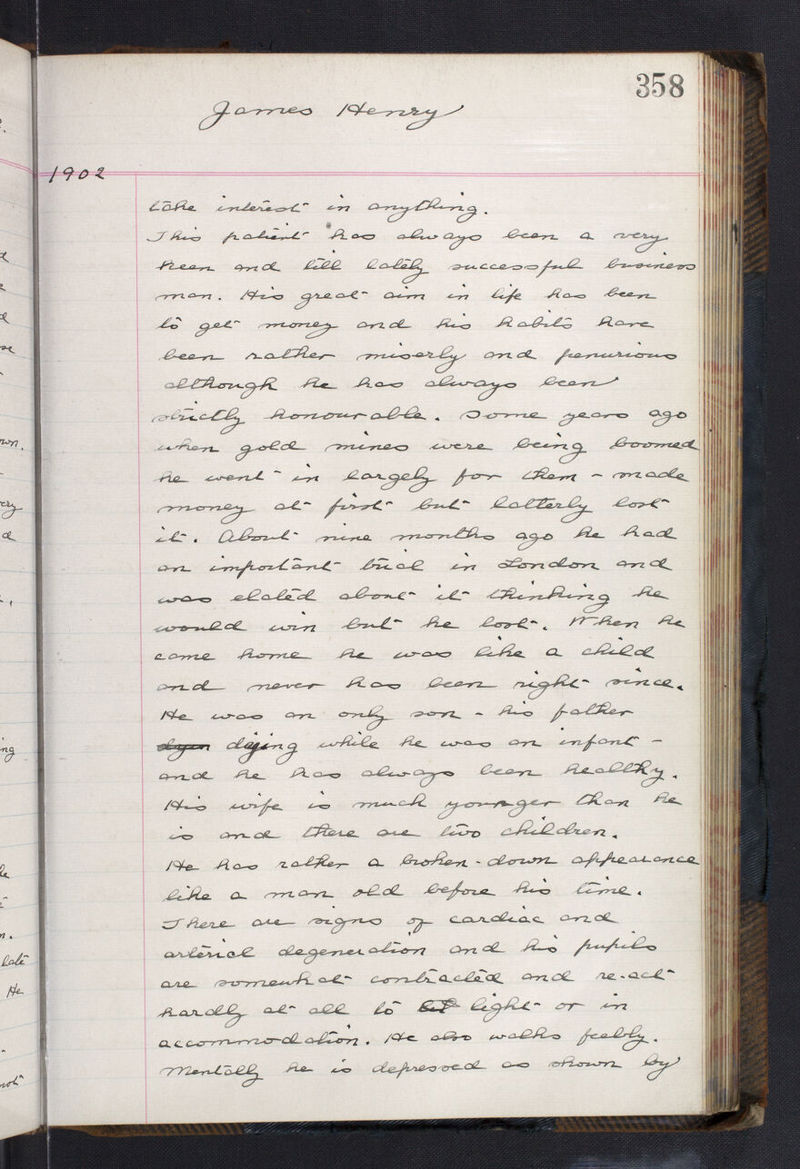 358
James Henry
1902
take interest in anything.
This patient has always been a very
keen and till lately successful business
man. His great aim in life has been
to get money and his habits have
been rather miserly and penurious
although he has always been
strictly honourable. Some years ago
when gold mines were being boomed
he went in largely for them - made
money at first but latterly lost
it. About nine months ago he had
an important trial in London and
was elated about it thinking he
would win but he lost. When he
came home he was like a child
and never has been right since.
He was an only son - his father
dying while he was an infant -
and he has always been healthy.
His wife is much younger than he
is and there are two children.
He has rather a broken-down appearance
like a man old before his time.
There are signs of cardiac and
arterial degeneration and his pupils
are somewhat contracted and re-act
hardly at all to light or in
accommodation. He also walks feebly.
Mentally he is depressed as shown by